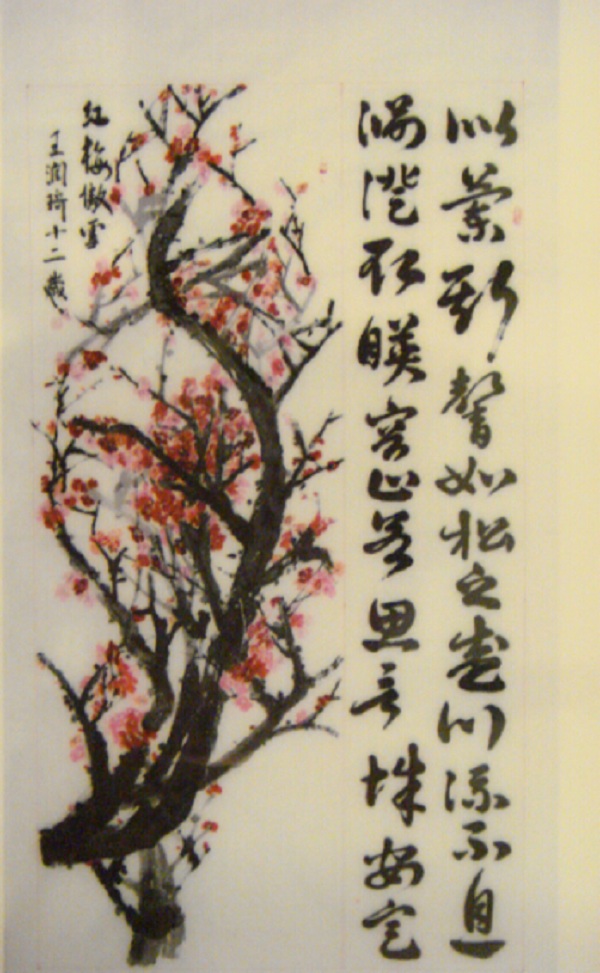 似蘭斯馨如松之盛川流不息
淵澄取暎容止若思言辭安定
红梅傲雪
王润琦十二歲